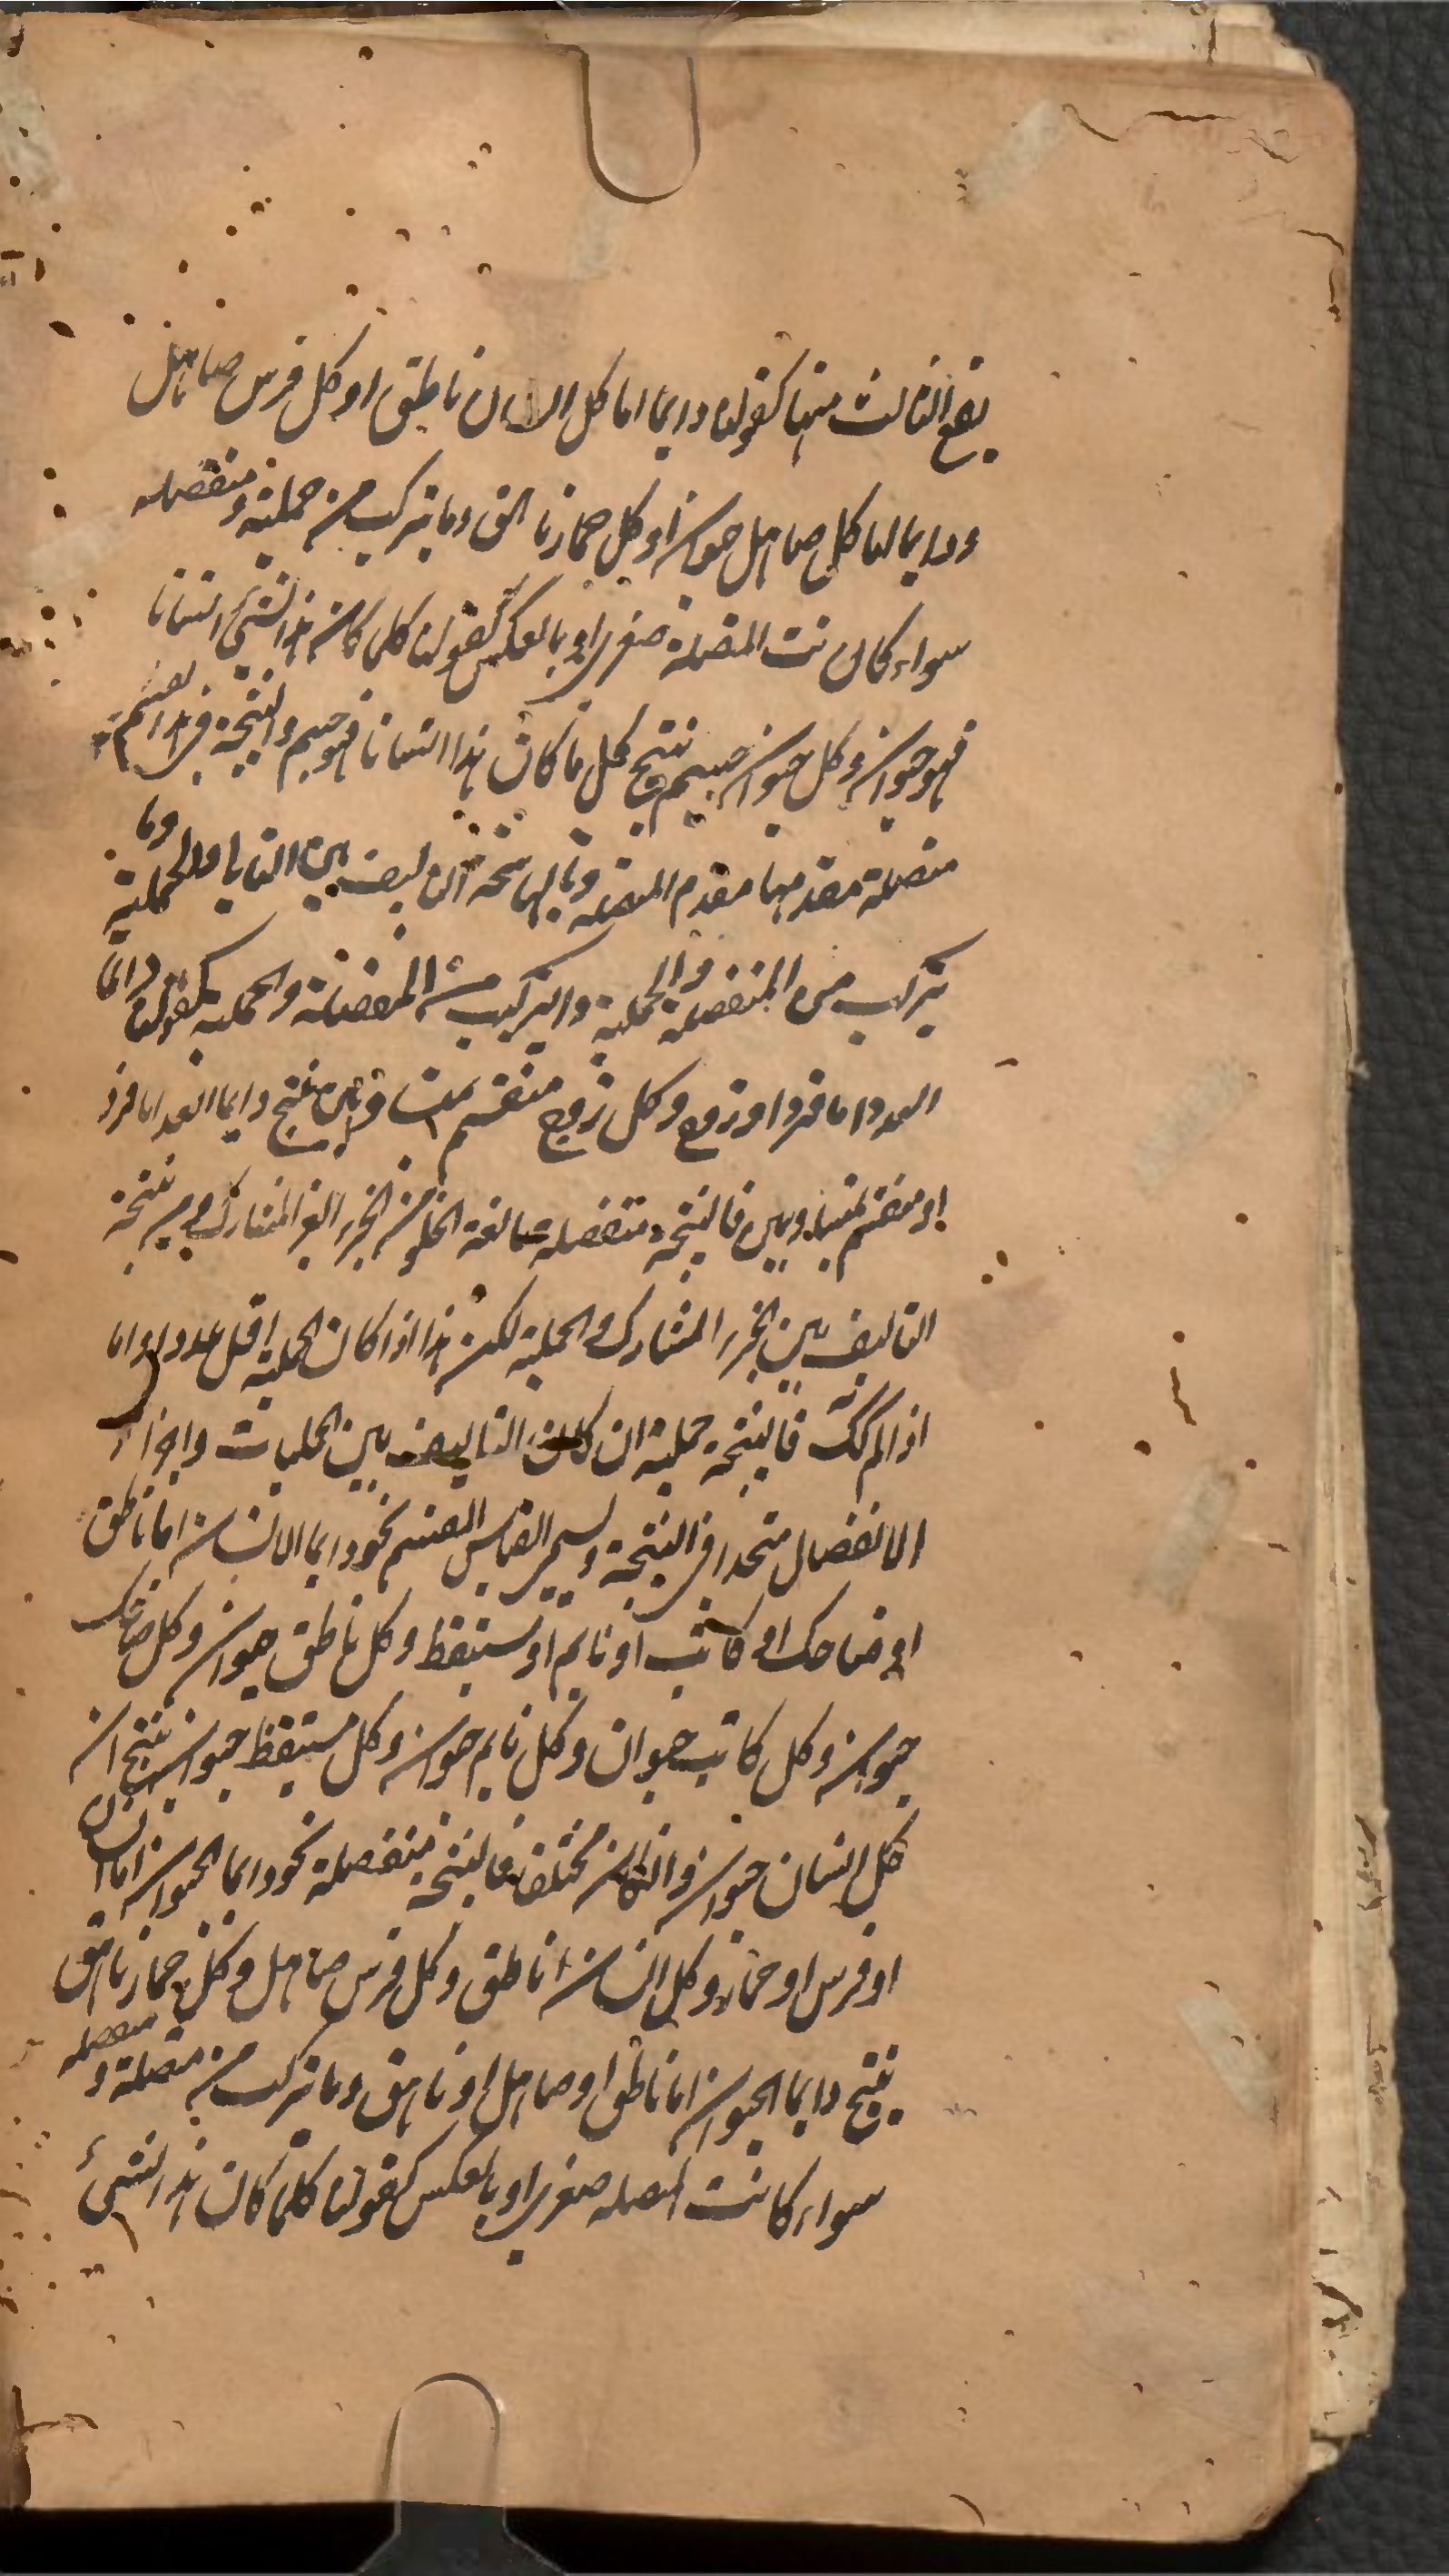 يقع الثالث منها كقولنا دايما اما كل انسان ناطق او كل فرس صاهل
ودايما اما كل صاهل حيوان او كل حمار ناهق وما يتركب من حملية ومنفصله
سواء كانت المتصلة صغرى او بالعكس كقولنا كلما كان هذا الشئ انسانا
فهو حيوان وكل حيوان جسم ينتج كل ما كان هذا انسانا فهو جسم والنتيجة في هذا القسم
متصلة مقدمها مقدم المتصلة وتاليها نتيجة التاليف بين التالي والحملية وما
يتركب من المنفصلة والحملية والتركيب من المنفصلة والحملية كقولنا دائما
العدد اما فرد او زوج وكل زوج منقسم بمتساويين ينتج دايما العدد اما فرد
او منقسم بمتساويين فالنتيجة منفصلة مانعة الخلو من الجزء الغير المتشارك ومن نتيجة
التاليف بين الجزء المتشارك والحملية لكن هذا اذا كان الحملية اقل عددا واما
اذا لم يكن فالنتيجة حملية ان كان التاليف بين الحمليات واجزاء
الانفصال متحدا في النتيجة ويسمى القياس المقسم نحو دايما الانسان اما ناطق
او ضاحك او كاتب او نايم او مستيقظ وكل ناطق حيوان وكل ضاحك
حيوان وكل كاتب حيوان وكل نايم حيوان وكل مستيقظ حيوان ينتج ان
كل انسان حيوان وان كان مختلفا فالنتيجة منفصلة نحو دايما الحيوان اما انسان
او فرس او حمار وكل انسان ناطق وكل فرس صاهل وكل حمار ناهق
ينتج دايما الحيوان اما ناطق او صاهل او ناهق وما يتركب من متصلة ومنفصله
سواء كانت المتصله صغرى او بالعكس كقولنا كلما كان هذا الشئ